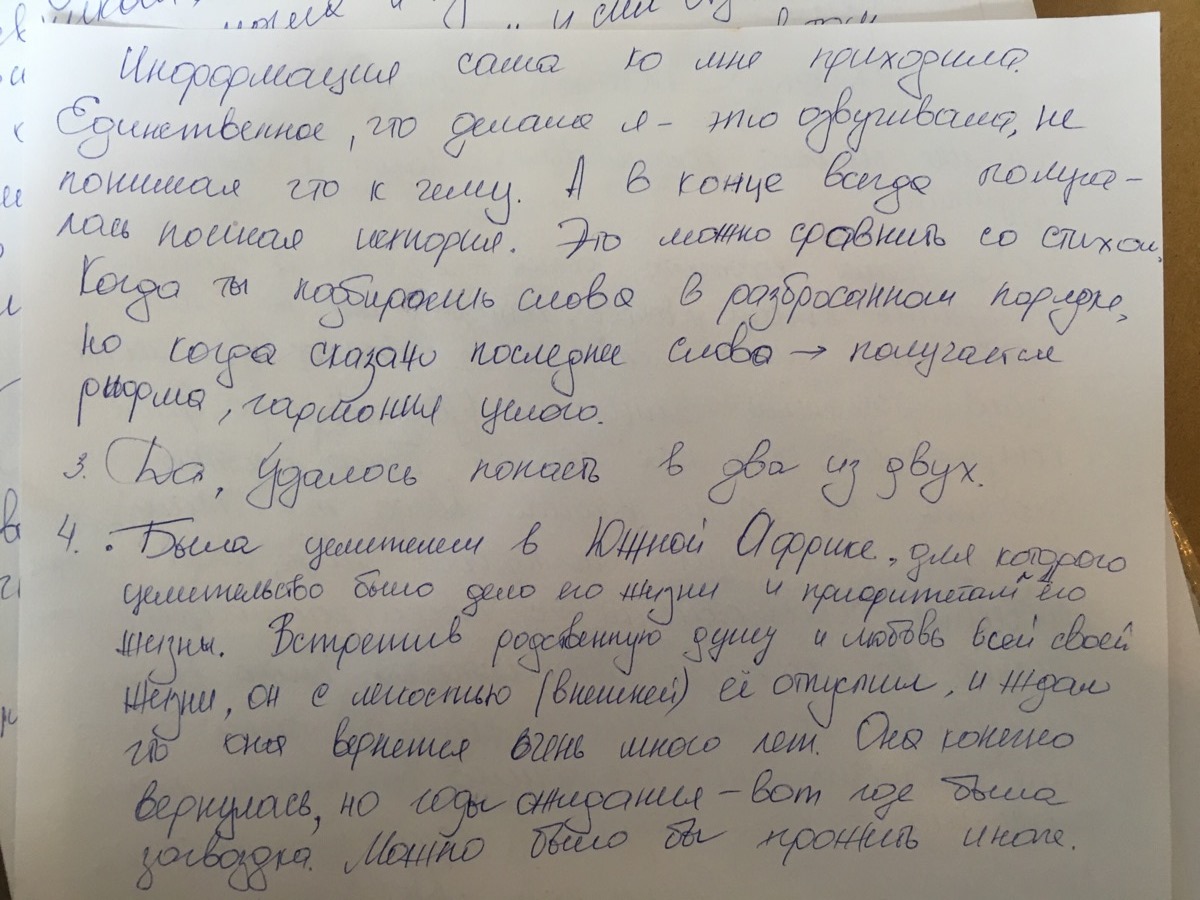 Информация сама ко мне приходила.
Единственное, что делала я - это озвучивала, не
понимая что к чему. А в конце всегда получа-
лась полная история. Это можно сравнить со стихом.
Когда ты подбираешь слова в разбросанном порядке,
но когда сказано последнее слово → получается
рифма, гармония целого.
3. Да, удалось попасть в два из двух.
4. • Была целителем в Южной Африке, для которого
целительство было дело его жизни и приоритетом его
жизни. Встретив родственную душу и любовь всей своей
жизни, он с легкостью (внешней) её отпустил, и ждал
что она вернется очень много лет. Она конечно
вернулась, но годы ожидания - вот где была
загвоздка. Можно было бы прожить иначе.